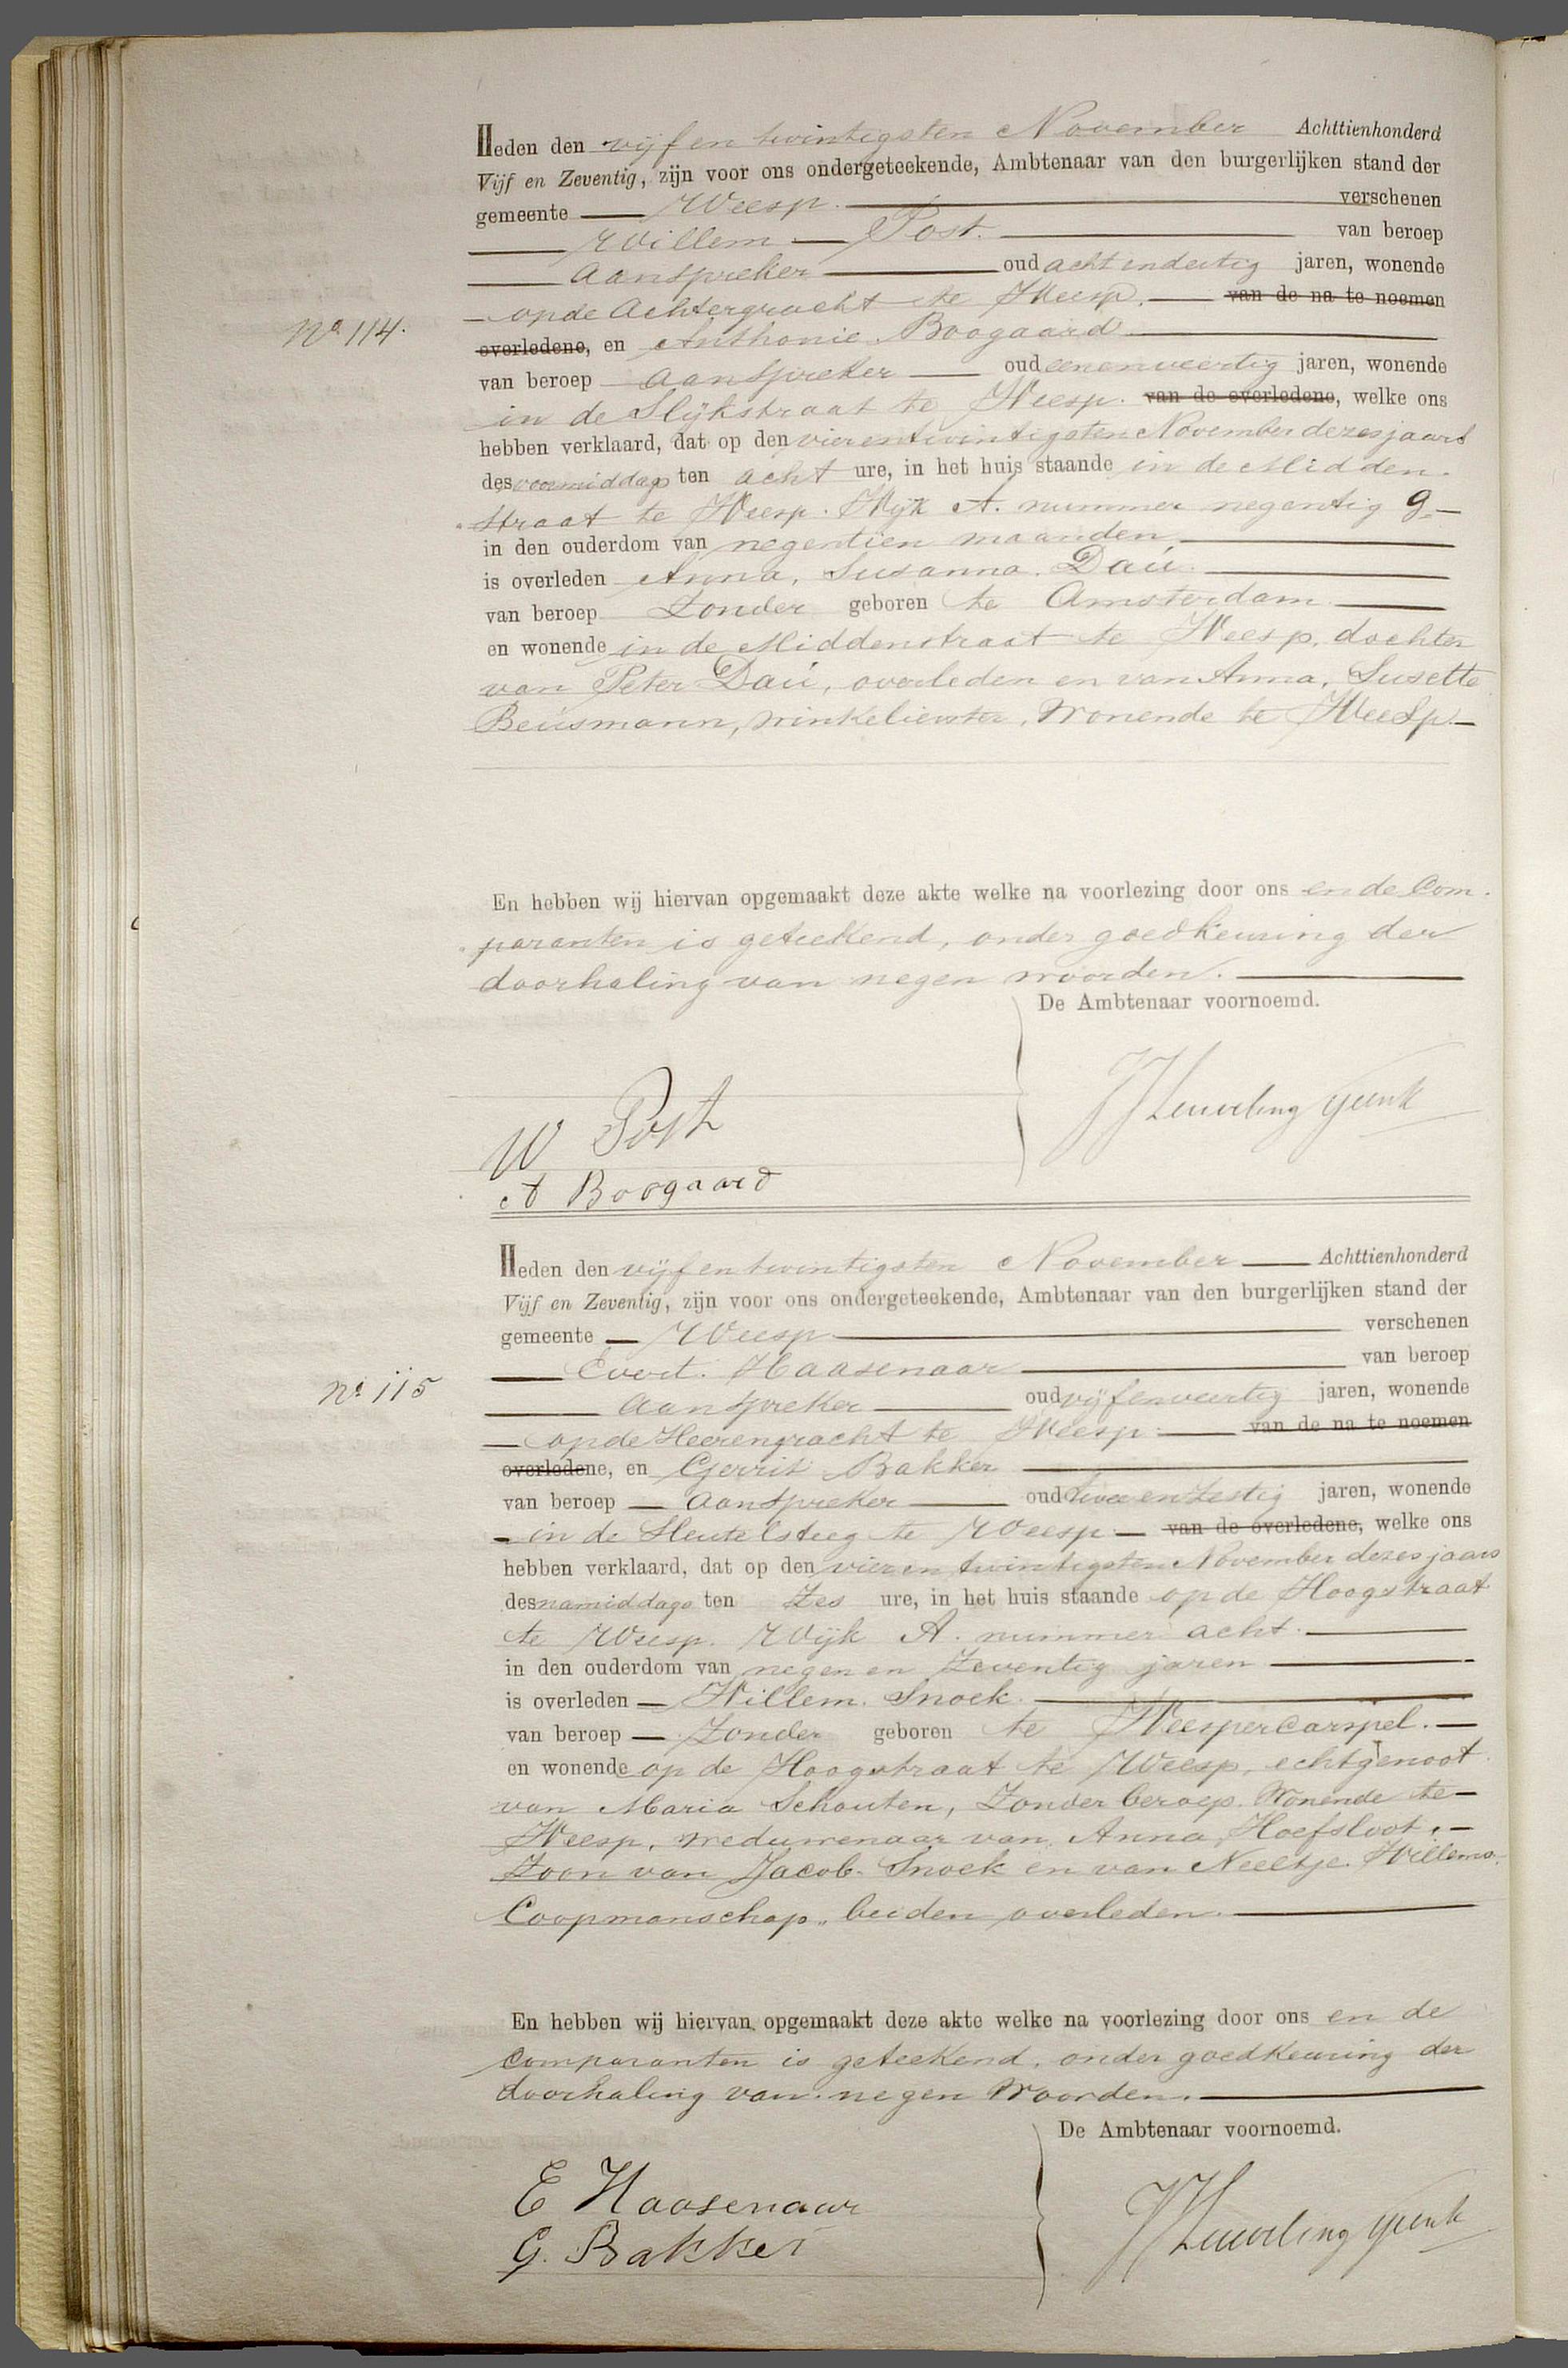 Heden den vijf en twintigsten November Achttienhonderd
Vijf en Zeventig, zijn voor ons ondergeteekende, Ambtenaar van den burgerlijken stand der
gemeente Weesp. verschenen
Willem Post. van beroep
aanspreker oud acht en dertig jaren, wonende
op de Achtergracht te Weesp. van de na te noemen
No 114.
overledene, en Anthonie Boogaard
van beroep aanspreker oud eenenveertig jaren, wonende
in de Slijkstraat te Weesp. van de overledene, welke ons
hebben verklaard, dat op den vierentwintigsten November dezes jaars
des voormiddags ten acht ure, in het huis staande in de Midden-
straat te Weesp. Wijk A. nummer negentig g
in den ouderdom van negentien maanden
is overleden Anna, Susanna. Daú.
van beroep Zonder geboren te Amsterdam
en wonende in de Middenstraat te Weesp, dochter
van Peter Daú, overleden en van Anna, Susette
Beúsmann, winkelierster, Wonende te Weesp.
En hebben wij hiervan opgemaakt deze akte welke na voorlezing door ons en de Com-
paranten is geteekend, onder goedkeuring der
doorhaling van negen woorden.
De Ambtenaar voornoemd.
W Post
A Boogaard
Heden den vijf en twintigsten November Achttienhonderd
Vijf en Zeventig, zijn voor ons ondergeteekende, Ambtenaar van den burgerlijken stand der
gemeente Weesp verschenen
Evert. Haasenaar van beroep
No 115
aanspreker oud vijfenveertig jaren, wonende
op de Heerengracht te Weesp. van de na te noemen
overledene, en Gerrit Bakker
van beroep aanspreker oud twee en zestig jaren, wonende
in de Sleutelsteeg te Weesp van de overledene, welke ons
hebben verklaard, dat op den vier en twintigsten November dezes jaars
des namiddags ten Zes ure, in het huis staande op de Hoogstraat
te Weesp. Wijk A. nummer acht.
in den ouderdom van negen en Zeventig jaren
is overleden Willem. Snoek.
van beroep Zonder geboren te Weespercarspel.
en wonende op de Hoogstraat te Weesp, echtgenoot
van Maria Schouten, Zonder beroep. Wonende te
Weesp, weduwenaar van Anna, Hoefsloot,
Zoon van Jacob. Snoek en van Neeltje. Willems.
Coopmanschap, beiden overleden.
En hebben wij hiervan opgemaakt deze akte welke na voorlezing door ons en de
Comparanten is geteekend, onder goedkeuring der
doorhaling van negen Woorden.
De Ambtenaar voornoemd.
E Haasenaar
G. Bakker